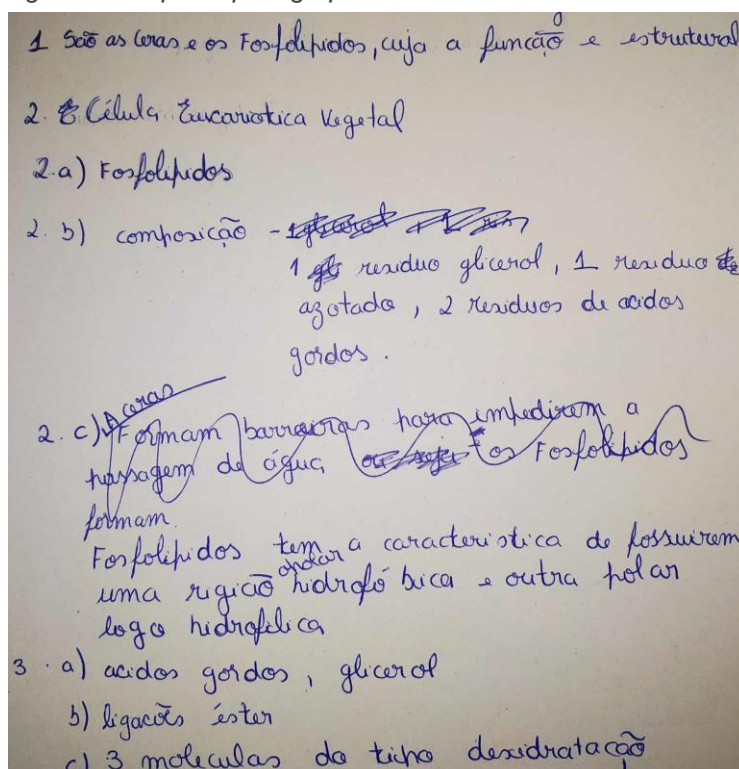 1 São as Ceras e os Fosfolipidos, cuja a função e estrutural
2. Célula Eucariotica Vegetal
2.a) Fosfolipidos
2. b) composicão -
1 residuo glicerol, 1 residuo
azotado, 2 residuos de acidos
gordos.
2. c) A ceras
Formam barreiras para impedirem a
passagem de água os Fosfolipidos
formam.
Fosfolipidos tem a caracteristica de possuirem
uma rigião apolar hidrofóbica e outra polar
logo hidrofilica
3. a) acidos gordos, glicerol
b) ligacões éster
c) 3 moleculas do ticho desidratacão